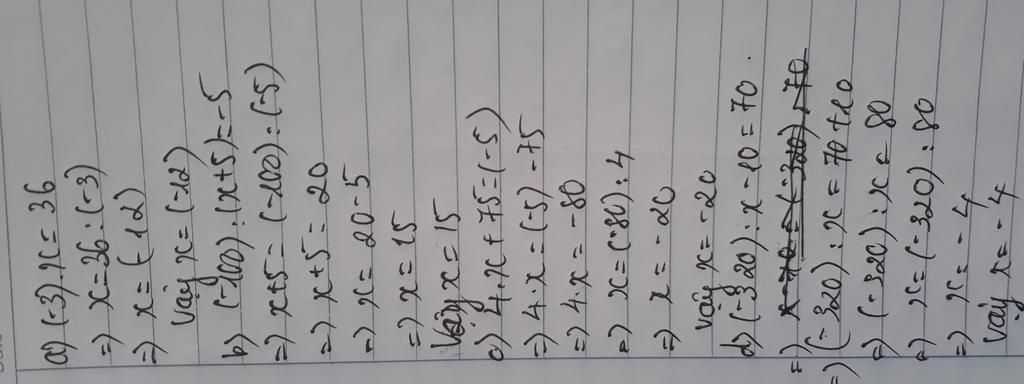 a) (-3).x = 36
=) x = 36 : (-3)
=) x = (-12)
Vậy x = (-12)
b) (-100) : (x+5) = -5
=) x+5 = (-100) : (-5)
=) x+5 = 20
=) x = 20-5
=) x = 15
Vậy x = 15
c) 4.x + 75 = (-5)
=) 4.x = (-5) - 75
=) 4.x = -80
=) x = (-80) : 4
=) x = -20
Vậy x = -20
d) (-320) : x - 10 = 70.
=) x - 10 = (-320) . 70
=) (-320) : x = 70 + 10
=) (-320) : x = 80
=) x = (-320) : 80
=) x = -4
Vậy x = -4